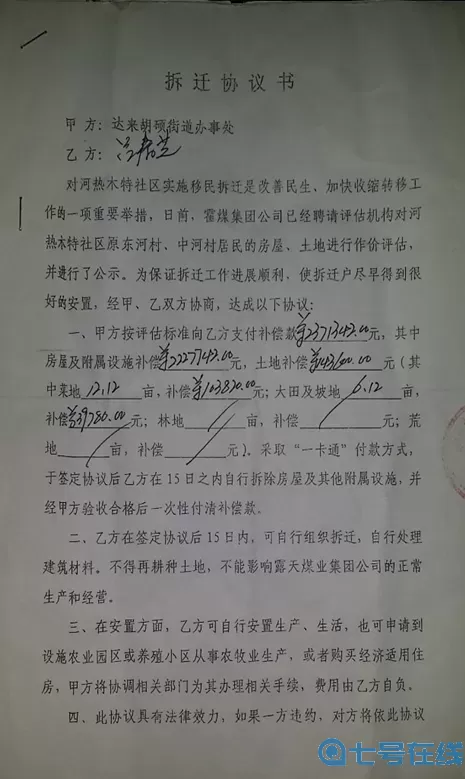 拆迁协议书
甲方：达来胡硕街道办事处
乙方：
对河热木特社区实施移民拆迁是改善民生，加快收缩转移工
作的一项重要举措，日前，霍煤集团公司已经聘请评估机构对河
热木特社区原东河村、中河村居民的房屋、土地进行作价评估，
并进行了公示。为保证拆迁工作进展顺利，使拆迁户尽早得到很
好的安置，经甲、乙双方协商，达成以下协议：
一、甲方按评估标准向乙方支付补偿款¥2371343.00元，其中
房屋及附属设施补偿¥2227743.00元，土地补偿¥143600.00元（其
中菜地12.12亩，补偿¥103820.00元；大田及坡地6.12亩，
补偿¥39780.00元；林地亩，补偿元；荒
地亩，补偿元）。采取“一卡通”付款方式，
于签定协议后乙方在15日之内自行拆除房屋及其他附属设施，并
经甲方验收合格后一次性付清补偿款。
二、乙方在签定协议后15日内，可自行组织拆迁，自行处理
建筑材料。不得再耕种土地，不能影响露天煤业集团公司的正常
生产和经营。
三、在安置方面，乙方可自行安置生产、生活，也可申请到
设施农业园区或养殖小区从事农牧业生产，或者购买经济适用住
房，甲方将协调相关部门为其办理相关手续，费用由乙方自负。
四、此协议具有法律效力，如果一方违约，对方将依此协议
七号在线